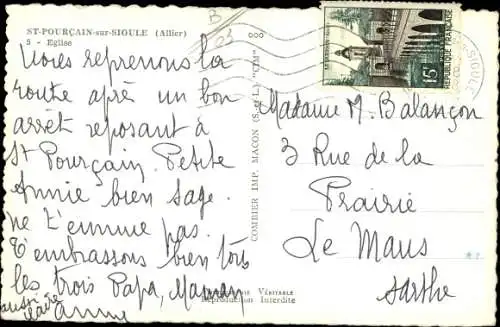 ST-POURÇAIN-sur-SIOULE (Allier)
5 - Eglise
Nous reprenons la
route après un bon
arrêt reposant à
St Pourçain. Petite
Annie bien sage.
ne t'ennuie pas.
T'embrassons bien tous
les trois Papa, Maman
Annie
aussi
COMBIER IMP. MACON (S.-et-L.) "CIM"
Reproduction Interdite
15F
REPUBLIQUE FRANÇAISE
Madame M. Balançon
3 Rue de la
Prairie
Le Mans
Sarthe